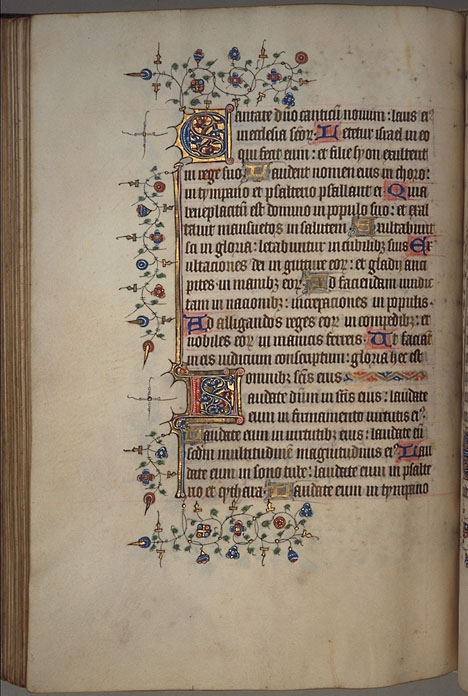 Cantate dño canticũ novum : laus ei9
in ecclesia scõr. Letetur israel in eo
qui fecit eum : et filie syon exultent
in rege suo. Laudent nomen eius in choro :
in tympano et psalterio psallant ei Quia
beneplacitũ est domino in populo suo : et exal
tavit mansuetos in salutem. Exultabunt
sci in gloria : letabuntur in cubilibz suis Ex
ultaciones dei in gutture eor̃ : et gladij anci
pites in manibz eor̃. Ad faciendam vindic
tam in nacionibz : increpaciones in populis.
Ad alligandos reges eor̃ in compedibz : et
nobiles eor̃ in manicis ferreis. Ut faciãt
in eis iudicium conscriptum : gloria hec est
omnibz scĩs eius
Laudate dñm in scĩs eius : laudate
eum in firmamento virtutis ei9.
Laudate eum in virtutibz eius : laudate eũ
scdm multitudinem magnitudinis ei9. Lau
date eum in sono tube : laudate eum in psalte
rio et cythara. Laudate eum in tympano